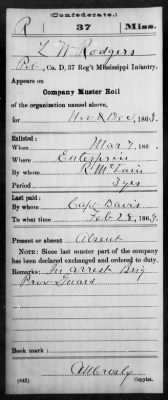 (Confederate.)
R 37 Miss.
L W Rodgers
Pvt., Co. D, 37 Reg't Mississippi Infantry.
Appears on
Company Muster Roll
of the organization named above,
for Nov & Dec, 1863.
Enlisted:
When Mar 7, 186
Where Enterprise
By whom R McLain
Period 3 yrs
Last paid:
By whom Capt Davis
To what time Feb 28, 1863.
Present or absent Absent
NOTE: Since last muster part of the company has been declared exchanged and ordered to duty.
Remarks: In arrest Brig
Prov Guard
Book mark:
(642) Copyist.